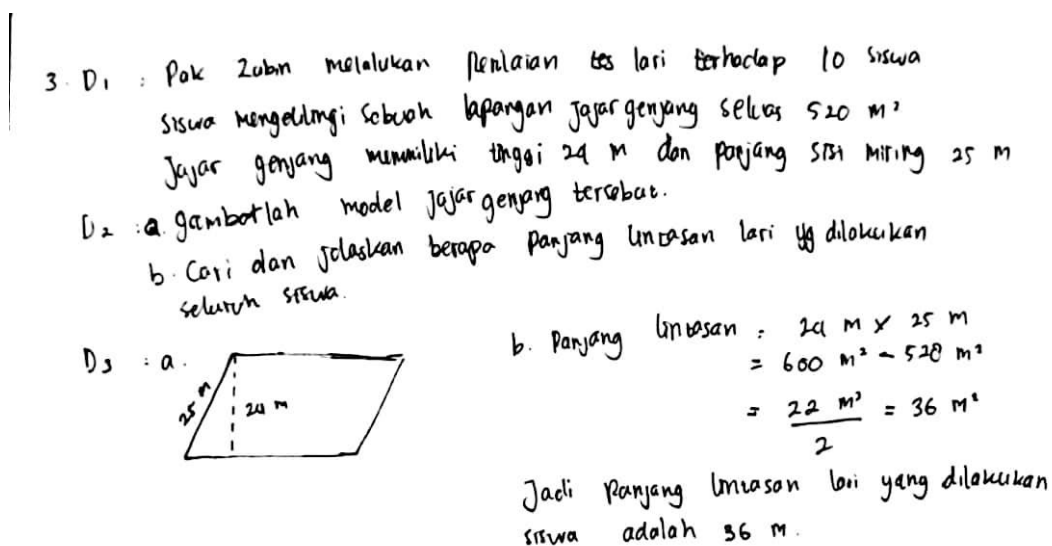 3. D1 : Pak Zubin melalukan Penlaian tes lari terhadap 10 siswa
siswa mengelilingi sebuah lapangan jajar genjang seluas 520 m²
Jajar genjang memmiliki tinggi 24 m dan panjang sisi miring 25 m
D2 : a. gambarlah model jajar genjang tersebut.
b. Cari dan jelaskan berapa panjang lintasan lari yg dilakukan
seluruh siswa.
D3 : a.
25 m
24 m
b. Panjang lintasan : 24 m x 25 m
= 600 m² - 528 m²
= 22 m² / 2 = 36 m²
Jadi Panjang lintasan lari yang dilakukan
siswa adalah 36 m.